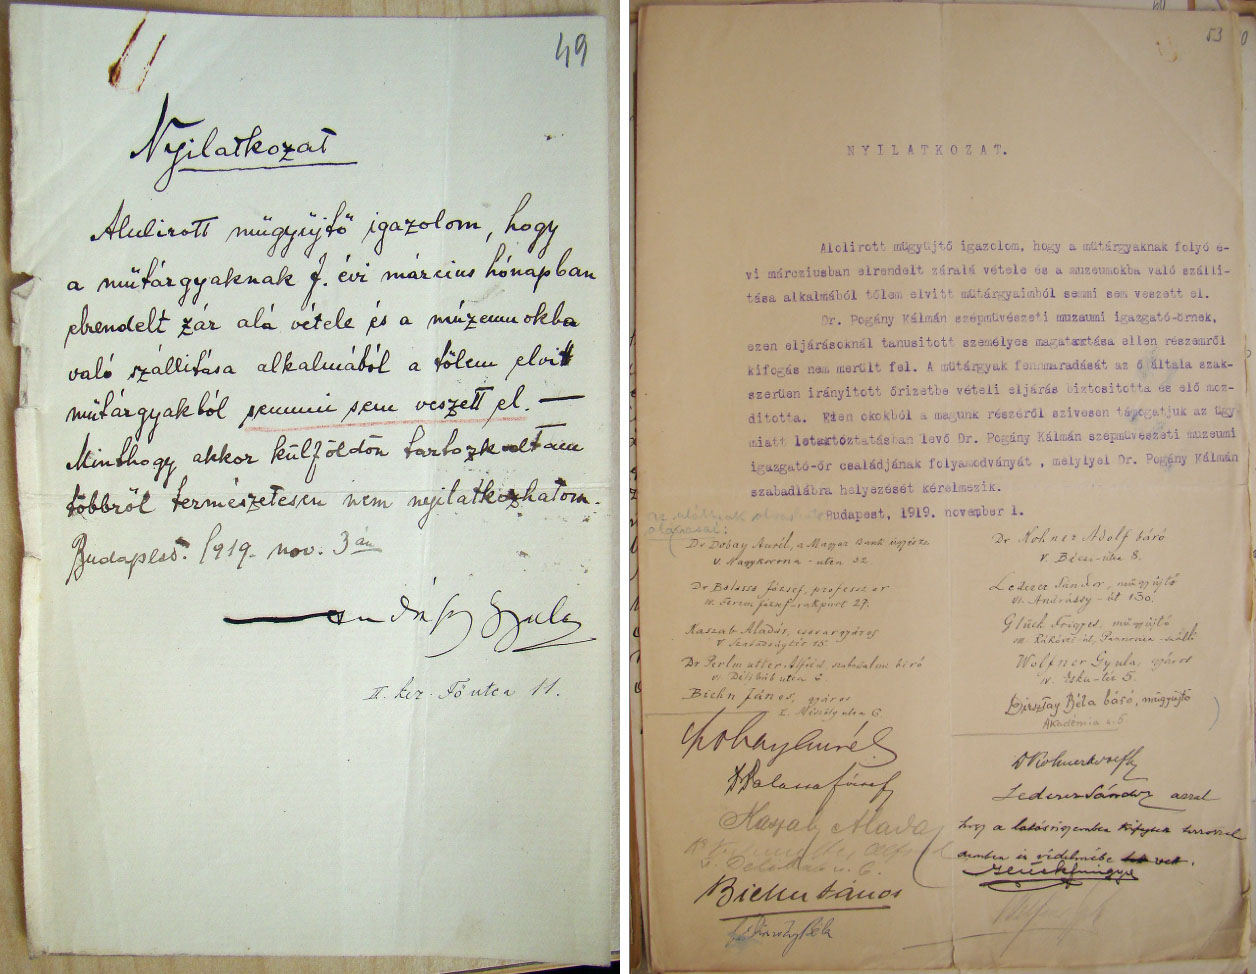 49
Nyilatkozat
Alulirott műgyüjtő igazolom, hogy
a műtárgyaknak f. évi március hónapban
elrendelt zár alá vétele és a múzeumokba
való szállitása alkalmából a tőlem elvitt
műtárgyakból semmi sem veszett el. —
Minthogy akkor külföldön tartozkodtam
többről természetesen nem nyilatkozhatom.
Budapest. 1919. nov. 3 án
Andrássy Gyula
II. ker. Fő utca 11.
53
NYILATKOZAT.
Alolirott műgyüjtő igazolom, hogy a műtárgyaknak folyó é-
vi márcziusban elrendelt záralá vétele és a muzeumokba való szálli-
tása alkalmából tőlem elvitt műtárgyaimból semmi sem veszett el.
Dr. Pogány Kálmán szépművészeti muzaumi igazgató-őrnek,
ezen eljárásoknál tanusitott személyes magatartása ellen részemről
kifogás nem merült fel. A műtárgyak fennmaradását az ő általa szak-
szerüen irányitott őrizetbe vételi eljárás biztositotta és elő moz-
ditotta. Ezen okokból a magunk részéről szivesen támogatjuk az ügy
miatt letartóztatásban levő Dr. Pogány Kálmán szépművészeti muzeumi
igazgató-őr családjának folyamodványát , melylyel Dr. Pogány Kálmán
szabadlábra helyezését kérelmezik.
Budapest, 1919. november 1.
Dr Dobay Aurél, a Magyar Bank ügyésze
V. Nagykorona - utca 32
Dr Balassa József, professzor
Ferenc József rakpart 27.
Kaszab Aladár, gyáros
V. Szabadságtér 15.
Dr Perlmutter Alfréd, szabadalmi biró
VI. Délibáb utca
Biehn János, gyáros
utca 6.
Dr Kohner Adolf báró
V. Bécsi-utca 8.
Lederer Sándor, műgyüjtő
VI. Andrássy - út 130.
Glück Frigyes, műgyüjtő
Rákóczi út, Pannonia - szálló
Wolfner Gyula, gyáros
IV. Eskü-tér 5.
Béla báró, műgyüjtő
Akadémia u. 5
Dobay Aurél
Dr Balassa József
Kaszab Aladár
Alfréd
Biehn János
Béla
Dr Kohner
Lederer Sándor azzal
hogy a
és védelmébe vett.